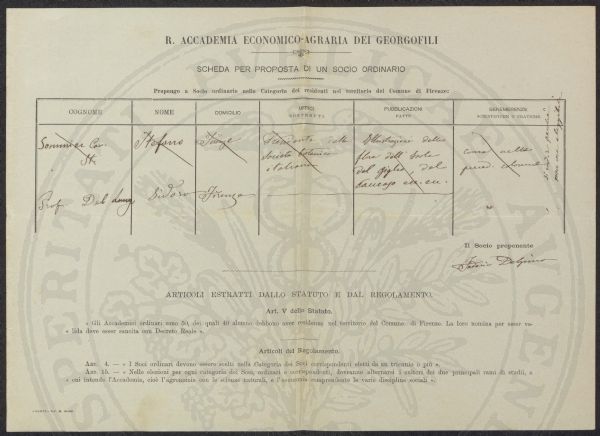 R. ACCADEMIA ECONOMICO-AGRARIA DEI GEORGOFILI
SCHEDA PER PROPOSTA DI UN SOCIO ORDINARIO
Propongo a Socio ordinario nella Categoria dei residenti nel territorio del Comune di Firenze:
COGNOME NOME DOMICILIO UFFICI COPERTI PUBBLICAZIONI FATTE BENEMERENZE
Sommier Cav. Stefano Firenze Presidente della Illustrazione della
Società botanica flora dell'Isola
italiana del Giglio, del
Caucaso ecc. ecc.
Prof. Del Lungo Isidoro Firenze
Il Socio proponente
Federico Delpino
ARTICOLI ESTRATTI DALLO STATUTO E DAL REGOLAMENTO.
Art. V dello Statuto.
« Gli Accademici ordinari sono 50, dei quali 40 almeno debbono aver residenza nel territorio del Comune di Firenze. La loro nomina per esser va-
« lida deve esser sancita con Decreto Reale ».
Articoli del Regolamento.
ART. 4. — « I Soci ordinari devono essere scelti nella Categoria dei Soci corrispondenti eletti da un triennio o più ».
ART. 15. — « Nelle elezioni per ogni categoria dei Soci, ordinari e corrispondenti, dovranno alternarsi i cultori dei due principali rami di studii, a
« cui intende l'Accademia, cioè l'agronomia con le scienze naturali, e l'economia comprendente le varie discipline sociali ».